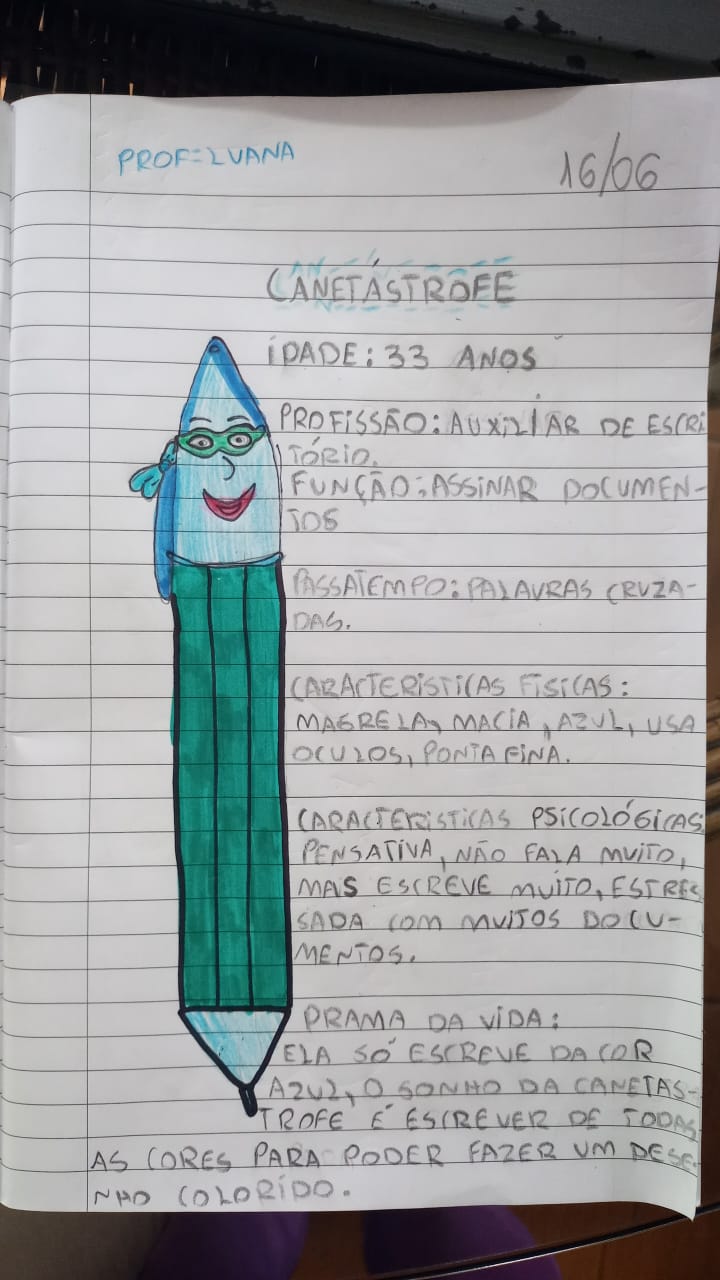 PROF=LUANA
16/06
CANETÁSTROFE
IDADE: 33 ANOS
PROFISSÃO: AUXILIAR DE ESCRI
TÓRIO.
FUNÇÃO: ASSINAR DOCUMEN-
TOS
PASSATEMPO: PALAVRAS CRUZA-
DAS.
CARACTERÍSTICAS FÍSICAS:
MAGRELA, MACIA, AZUL, USA
OCULOS, PONTA FINA.
CARACTERISTICAS PSICOLÓGICAS
PENSATIVA, NÃO FALA MUITO,
MAS ESCREVE MUITO, ESTRES
SADA COM MUITOS DOCU-
MENTOS.
PRAMA DA VIDA:
ELA SÓ ESCREVE DA COR
AZUL, O SONHO DA CANETAS-
TROFE É ESCREVER DE TODAS
AS CORES PARA PODER FAZER UM DESE-
NHO COLORIDO.